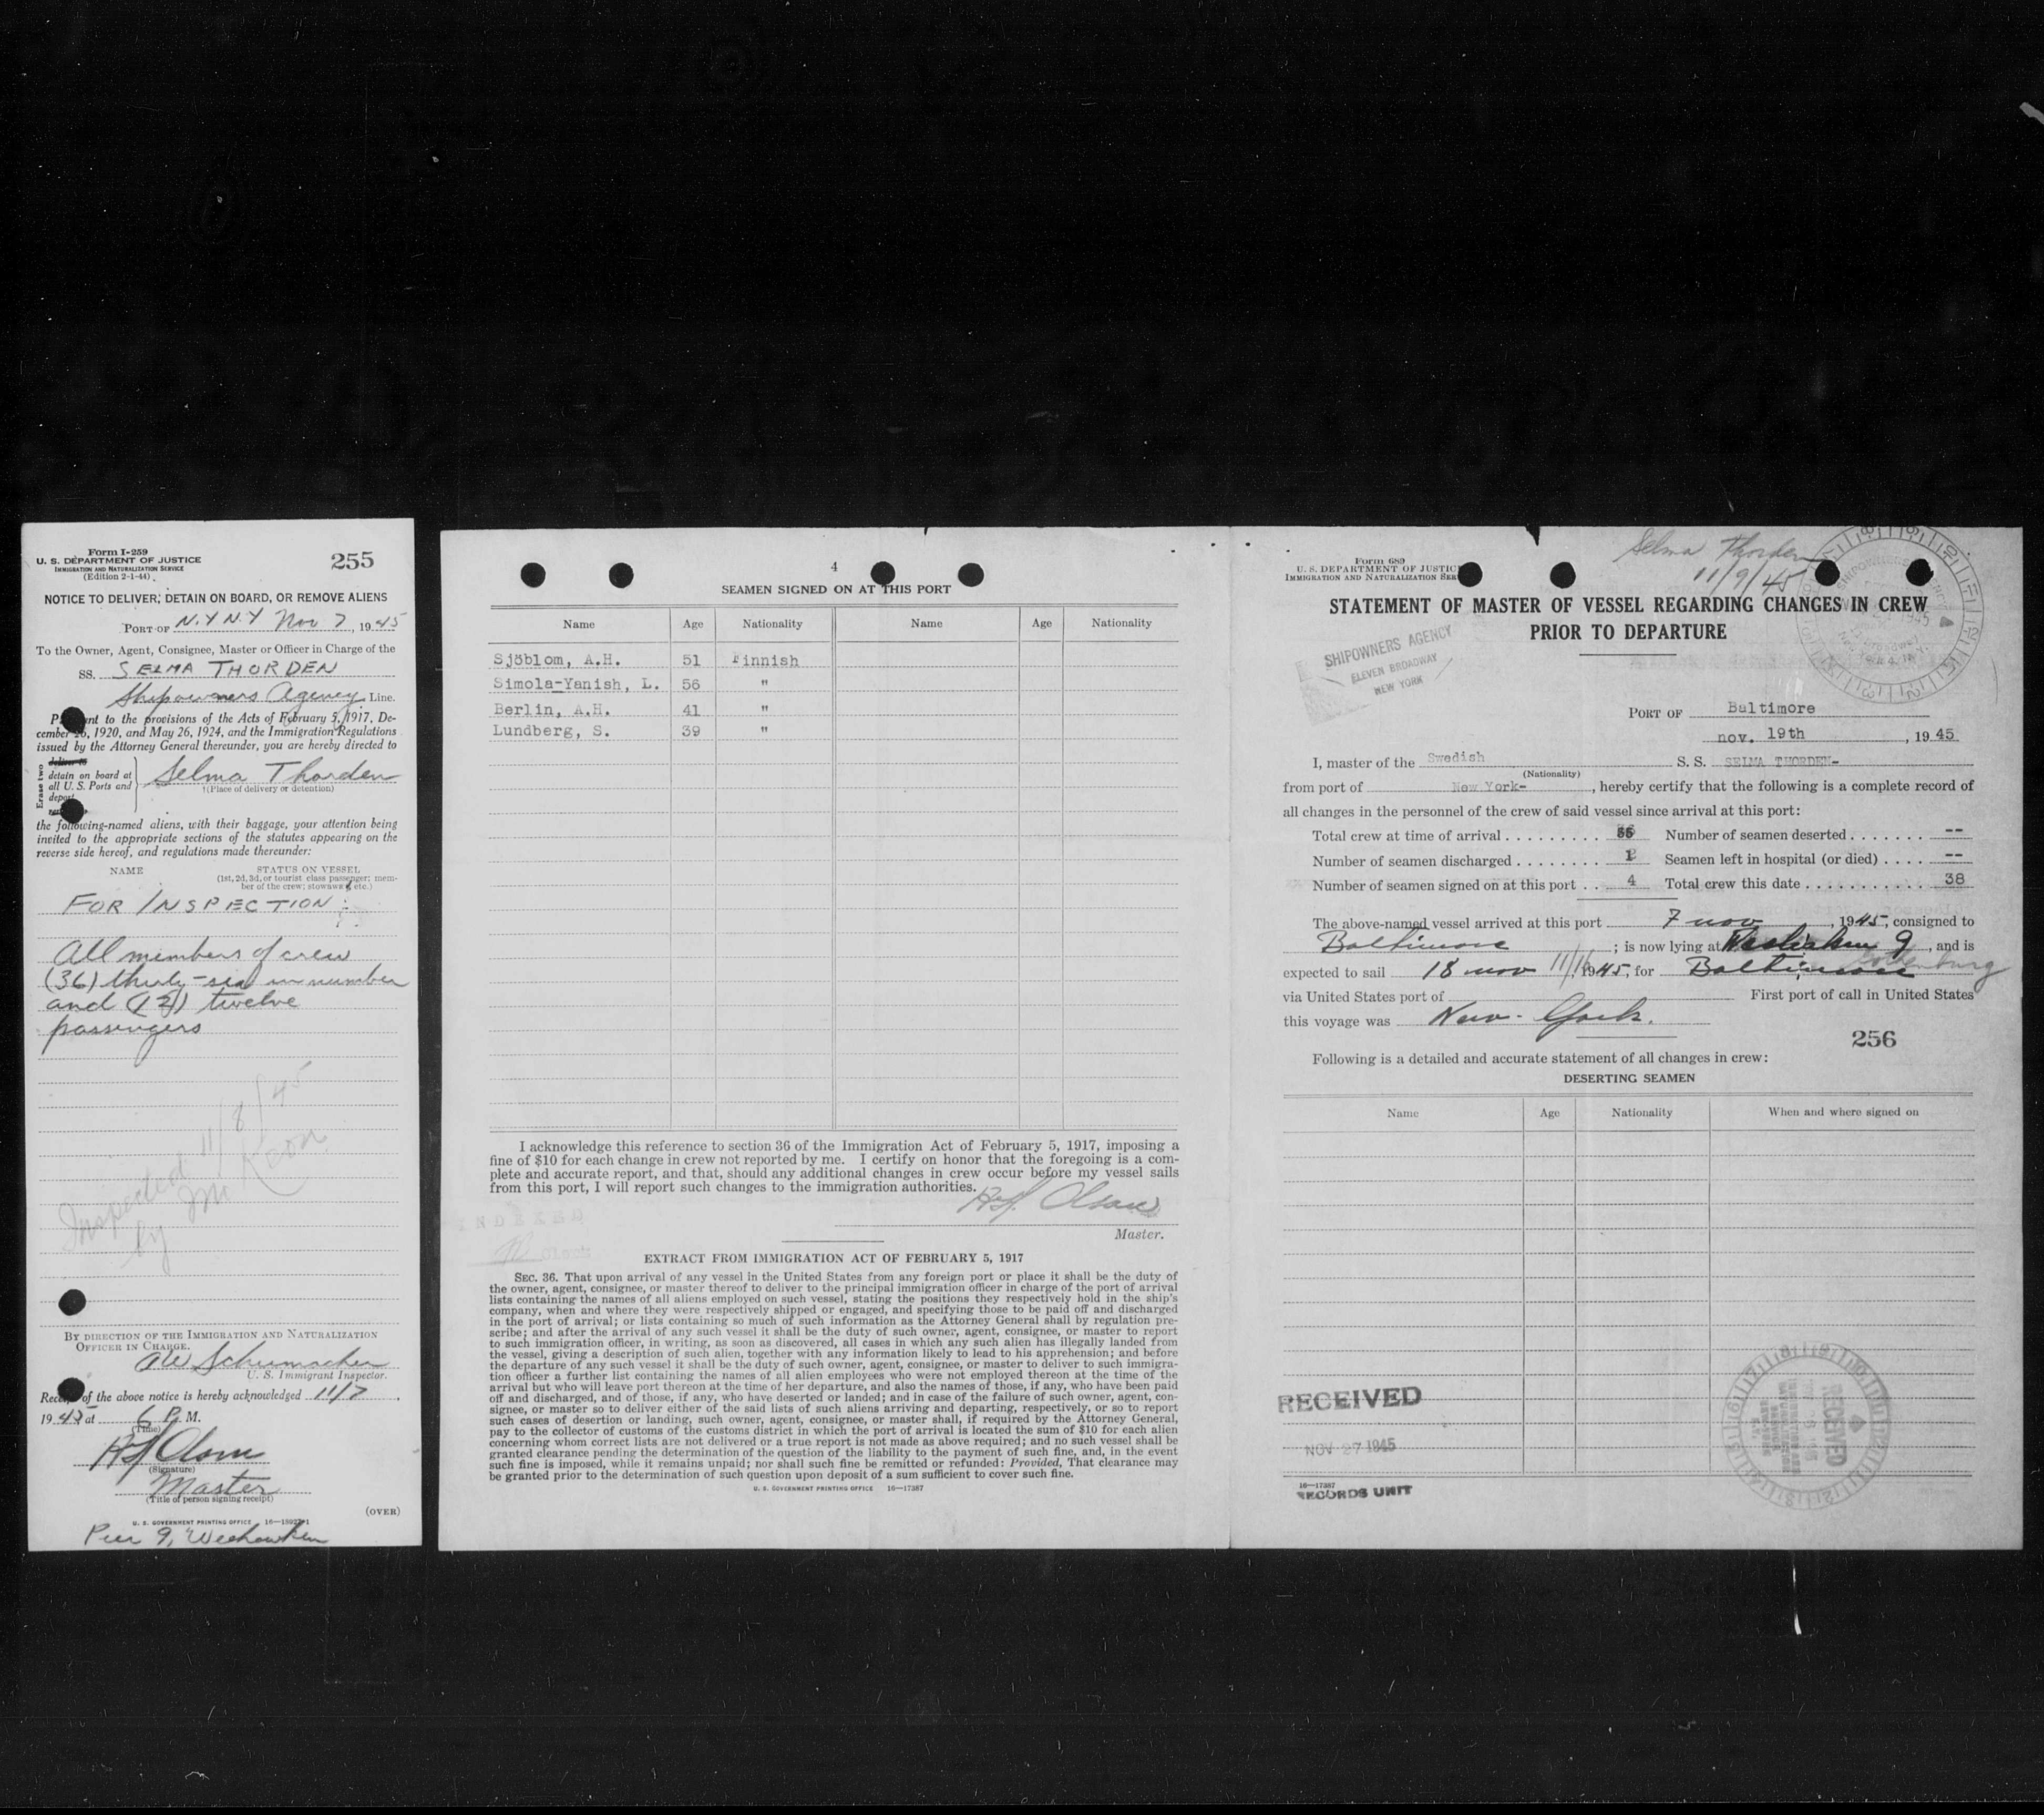 Form I-259
U. S. DEPARTMENT OF JUSTICE
IMMIGRATION AND NATURALIZATION SERVICE
(Edition 2-1-44)
255
NOTICE TO DELIVER, DETAIN ON BOARD, OR REMOVE ALIENS
PORT OF N.Y N.Y Nov 7, 1945
To the Owner, Agent, Consignee, Master or Officer in Charge of the
SS. SELMA THORDEN
Shipowners Agency Line.
Pursuant to the provisions of the Acts of February 5, 1917, De-
cember 26, 1920, and May 26, 1924, and the Immigration Regulations
issued by the Attorney General thereunder, you are hereby directed to
Erase two
deliver to
detain on board at
all U.S. Ports and
depart
Selma Thorden
†(Place of delivery or detention)
the following-named aliens, with their baggage, your attention being
invited to the appropriate sections of the statutes appearing on the
reverse side hereof, and regulations made thereunder:
NAME
STATUS ON VESSEL
(1st, 2d, 3d, or tourist class passenger; mem-
ber of the crew; stowaway, etc.)
FOR INSPECTION:
All members of crew
(36) thirty-six in number
and (12) twelve
passengers
Inspected 11/8/45
by Mc Keon
BY DIRECTION OF THE IMMIGRATION AND NATURALIZATION
OFFICER IN CHARGE.
AW Schumacher
U. S. Immigrant Inspector.
Receipt of the above notice is hereby acknowledged 11/7,
1945 at 6 P. M.
(Time)
Olson
(Signature)
Master
(Title of person signing receipt)
(OVER)
U. S. GOVERNMENT PRINTING OFFICE
Pier 9, Weehawken
4
SEAMEN SIGNED ON AT THIS PORT
Name Age Nationality Name Age Nationality
Sjöblom, A.H. 51 Finnish
Simola-Yanish, L. 56 "
Berlin, A.H. 41 "
Lundberg, S. 39 "
I acknowledge this reference to section 36 of the Immigration Act of February 5, 1917, imposing a
fine of $10 for each change in crew not reported by me. I certify on honor that the foregoing is a com-
plete and accurate report, and that, should any additional changes in crew occur before my vessel sails
from this port, I will report such changes to the immigration authorities.
Olson
Master.
INDEXED
EXTRACT FROM IMMIGRATION ACT OF FEBRUARY 5, 1917
SEC. 36. That upon arrival of any vessel in the United States from any foreign port or place it shall be the duty of
the owner, agent, consignee, or master thereof to deliver to the principal immigration officer in charge of the port of arrival
lists containing the names of all aliens employed on such vessel, stating the positions they respectively hold in the ship's
company, when and where they were respectively shipped or engaged, and specifying those to be paid off and discharged
in the port of arrival; or lists containing so much of such information as the Attorney General shall by regulation pre-
scribe; and after the arrival of any such vessel it shall be the duty of such owner, agent, consignee, or master to report
to such immigration officer, in writing, as soon as discovered, all cases in which any such alien has illegally landed from
the vessel, giving a description of such alien, together with any information likely to lead to his apprehension; and before
the departure of any such vessel it shall be the duty of such owner, agent, consignee, or master to deliver to such immigra-
tion officer a further list containing the names of all alien employees who were not employed thereon at the time of the
arrival but who will leave port thereon at the time of her departure, and also the names of those, if any, who have been paid
off and discharged, and of those, if any, who have deserted or landed; and in case of the failure of such owner, agent, con-
signee, or master so to deliver either of the said lists of such aliens arriving and departing, respectively, or so to report
such cases of desertion or landing, such owner, agent, consignee, or master shall, if required by the Attorney General,
pay to the collector of customs of the customs district in which the port of arrival is located the sum of $10 for each alien
concerning whom correct lists are not delivered or a true report is not made as above required; and no such vessel shall be
granted clearance pending the determination of the question of the liability to the payment of such fine, and, in the event
such fine is imposed, while it remains unpaid; nor shall such fine be remitted or refunded: Provided, That clearance may
be granted prior to the determination of such question upon deposit of a sum sufficient to cover such fine.
U. S. GOVERNMENT PRINTING OFFICE 16—17387
Selma Thorden
11/9/45
Form 689
U. S. DEPARTMENT OF JUSTICE
IMMIGRATION AND NATURALIZATION SERVICE
STATEMENT OF MASTER OF VESSEL REGARDING CHANGES IN CREW
PRIOR TO DEPARTURE
SHIPOWNERS AGENCY
ELEVEN BROADWAY
NEW YORK
PORT OF Baltimore
nov. 19th, 1945
I, master of the Swedish S. S. SELMA THORDEN-
(Nationality)
from port of New York-, hereby certify that the following is a complete record of
all changes in the personnel of the crew of said vessel since arrival at this port:
Total crew at time of arrival 36 Number of seamen deserted --
Number of seamen discharged Seamen left in hospital (or died) --
Number of seamen signed on at this port 4 Total crew this date 38
The above-named vessel arrived at this port 7 nov, 1945, consigned to
Baltimore; is now lying at 9, and is
expected to sail 18 nov 11/16 1945, for Baltimore Gothenburg
via United States port of First port of call in United States
this voyage was New-York.
256
Following is a detailed and accurate statement of all changes in crew:
DESERTING SEAMEN
Name Age Nationality When and where signed on
RECEIVED
NOV 27 1945
16—17387
RECORDS UNIT
RECEIVED